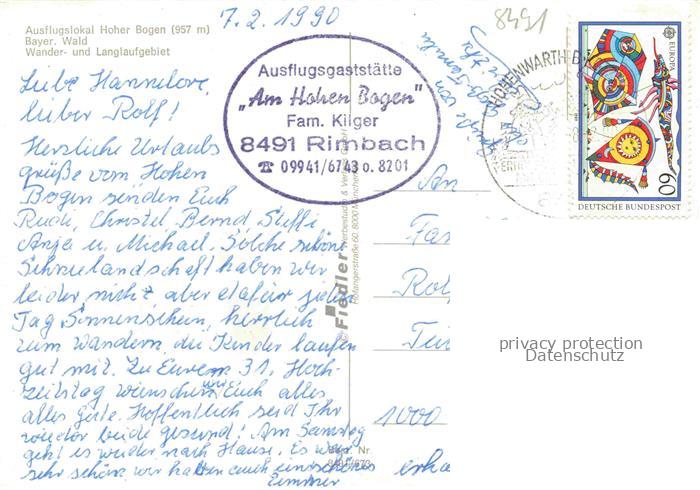 Ausflugslokal Hoher Bogen (957 m)
Bayer. Wald
Wander- und Langlaufgebiet
7.2.1990
8491
Ausflugsgaststätte
„Am Hohen Bogen"
Fam. Kilger
8491 Rimbach
☎ 09941/6743 o. 8201
HOHENWARTH B
EUROPA
60
DEUTSCHE BUNDESPOST
Liebe Hannelore,
lieber Rolf!
Herzliche Urlaubs
grüße vom Hohen
Bogen senden Euch
Rudi, Christel, Bernd, Steffi
Anja u. Michael. Solche schöne
Schneelandschaft haben wir
leider nicht, aber dafür jeden
Tag Sonnenschein, herrlich
zum Wandern, die Kinder laufen
gut mit. Zu Eurem 31. Hoch-
zeitstag wünschen wir Euch alles
alles Gute. Hoffentlich seid Ihr
wieder beide gesund! Am Samstag
geht es wieder nach Hause. Es war
sehr schön, wir hatten auch ein schönes
Zimmer
© Fiedler
An
Fa
Rol
1000
privacy protection
Datenschutz